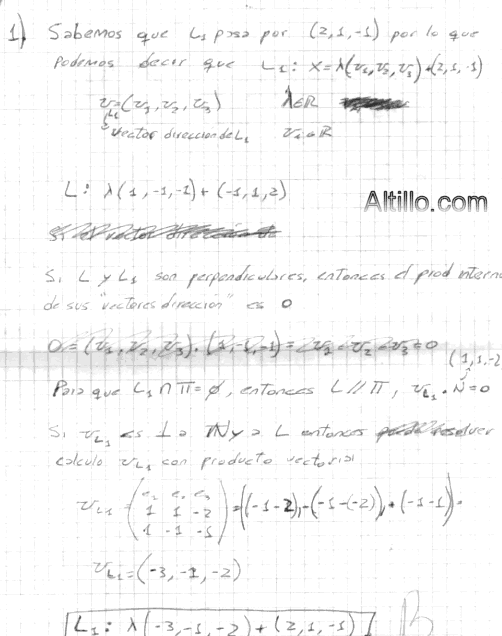 1) Sabemos que L₁ pasa por (2,1,-1) por lo que
podemos decir que L₁: X=λ(v₁,v₂,v₃)+(2,1,-1)
v=(v₁,v₂,v₃) λ∈ℝ
L₁
vector direccion de L₁ ∈ℝ
L: λ(1,-1,-1)+(-1,1,2)
Altillo.com
Si L y L₁ son perpendiculares, entonces el prod interno
de sus "vectores dirección" es 0
0=(v₁,v₂,v₃).(1,-1,-1)= =0
(1,1,-2
Para que L₁∩π=∅, entonces L//π, v_L₁.N=0
Si v_L₁ es ⊥ a N y a L entonces
calculo v_L₁ con producto vectorial
v_L₁=(e₁ e₂ e₃
1 1 -2
1 -1 -1)=((-1-2),-(-1-(-2)),+(-1-1))=
v_L₁=(-3,-1,-2)
L₁: λ(-3,-1,-2)+(2,1,-1)
B